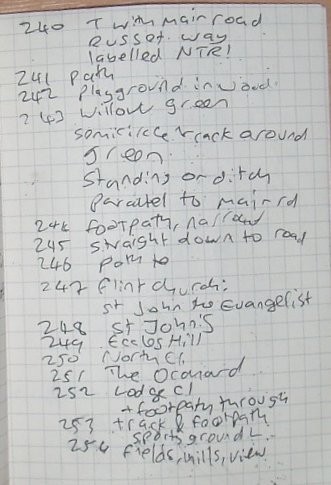 240 T with main road
Russet way
labelled NTR!
241 path
242 Playground in wood
243 willow green
semicircle track around
green.
Standing or ditch
parallel to main rd
244 footpath, narrow
245 straight down to road
246 path to
247 Flint church:
St John the Evangelist
248 St John's
249 Eccles Hill
250 North Cl.
251 The Orchard
252 Lodge Cl
+ footpath through
253 track & footpath
sports ground L
254 fields, hills, view